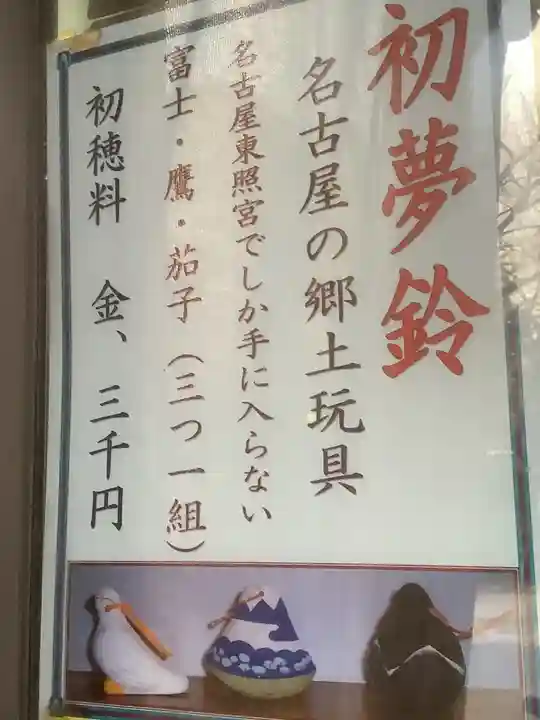 初夢鈴
名古屋の郷土玩具
名古屋東照宮でしか手に入らない
富士・鷹・茄子(三つ一組)
初穂料 金、三千円